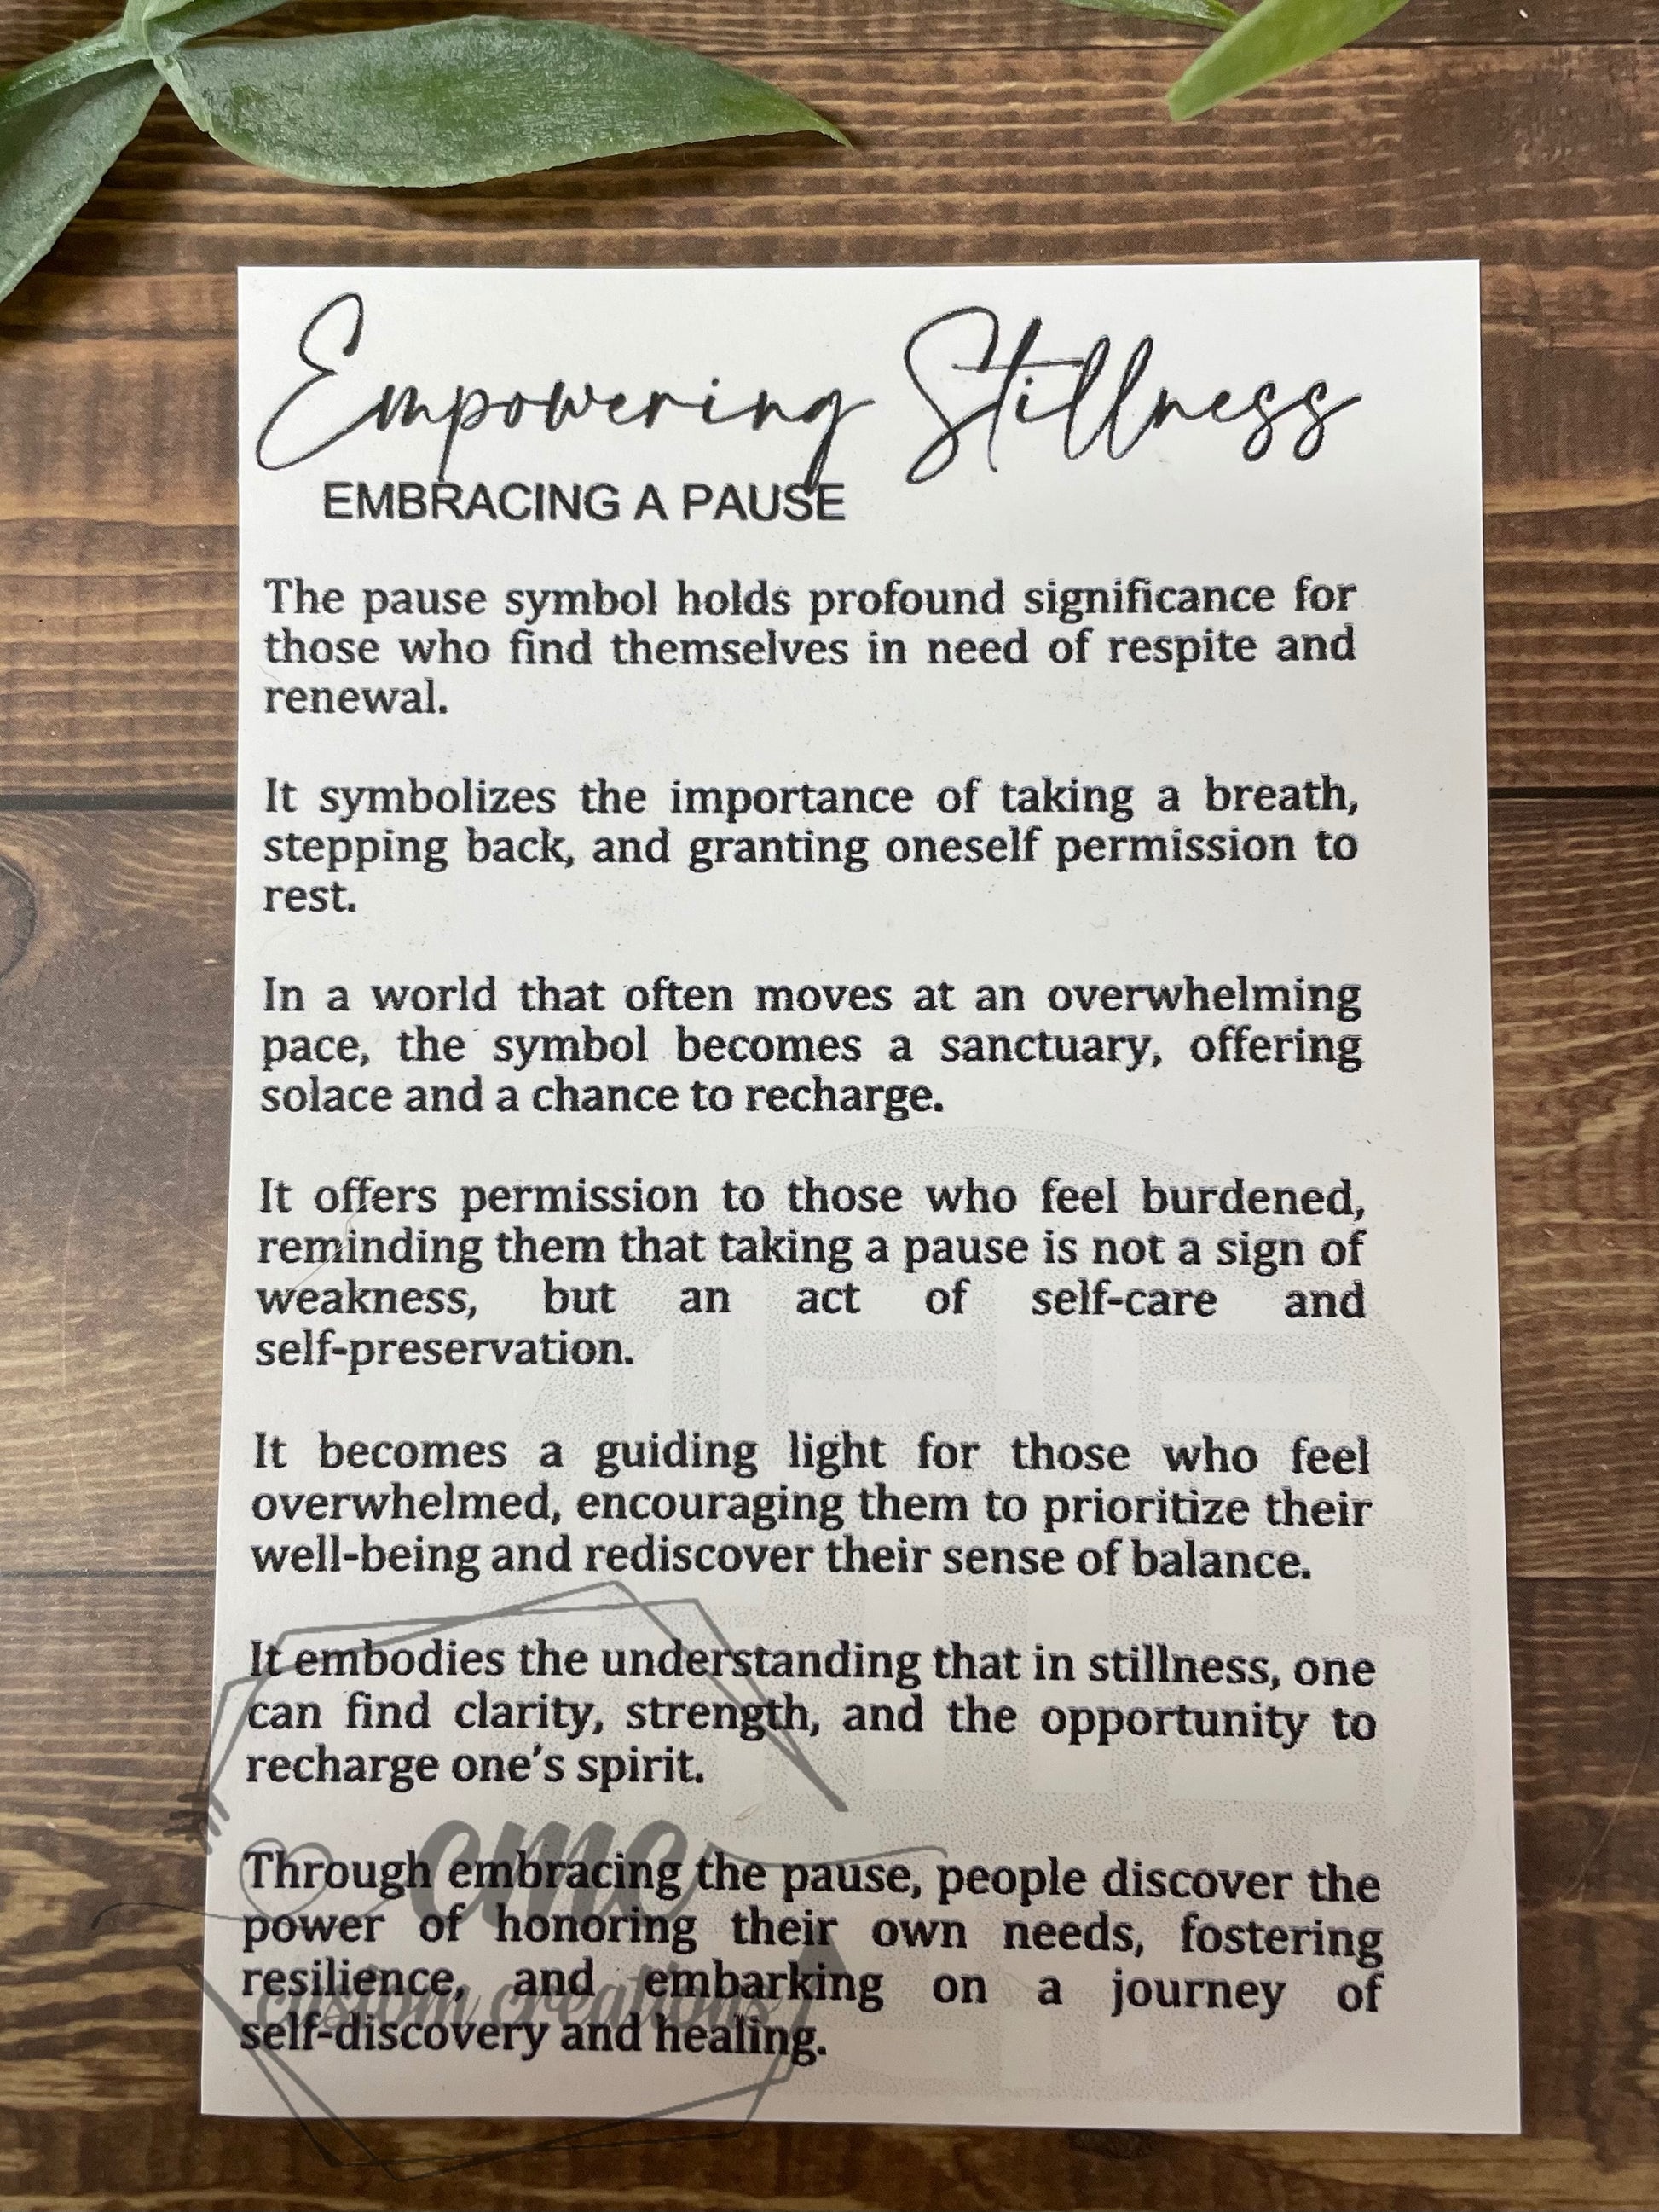 Empowering Stillness
EMBRACING A PAUSE
The pause symbol holds profound significance for
those who find themselves in need of respite and
renewal.
It symbolizes the importance of taking a breath,
stepping back, and granting oneself permission to
rest.
In a world that often moves at an overwhelming
pace, the symbol becomes a sanctuary, offering
solace and a chance to recharge.
It offers permission to those who feel burdened,
reminding them that taking a pause is not a sign of
weakness, but an act of self-care and
self-preservation.
It becomes a guiding light for those who feel
overwhelmed, encouraging them to prioritize their
well-being and rediscover their sense of balance.
It embodies the understanding that in stillness, one
can find clarity, strength, and the opportunity to
recharge one's spirit.
Through embracing the pause, people discover the
power of honoring their own needs, fostering
resilience, and embarking on a journey of
self-discovery and healing.
cmc
custom creations